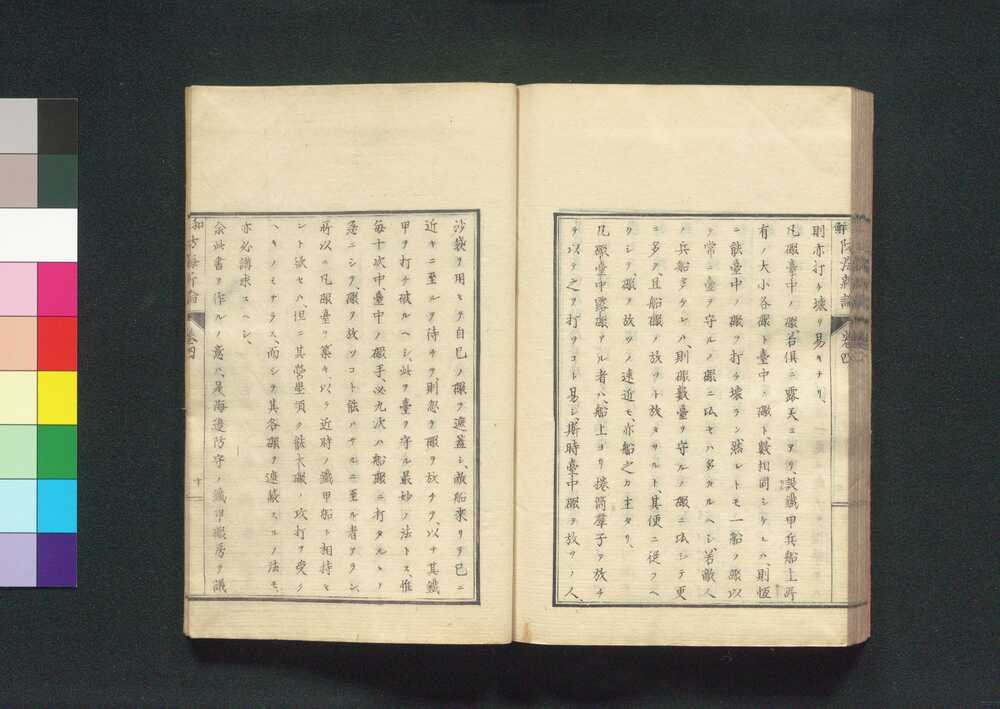 則亦打チ壊リ易キナリ、
凡礮臺中ノ礮、若俱ニ露天ニアリ、設鐵甲兵船上所
有ノ大小各礮ト臺中ノ礮ト、數相同シケレハ、則恆
ニ能臺中ノ礮ヲ打チ壊ラン然レトモ一船ノ礮以
テ常ニ臺ヲ守ルノ礮ニ比セハ多カルヘシ、若敵人
ノ兵船多ケレハ、則礮數臺ヲ守ルノ礮ニ比シテ更
ニ多ク、且船礮ノ放ツト放タサルト、其便ニ從フヘ
クシテ、礮ヲ放ツノ遠近モ、亦船之カ主タリ、
凡礮臺中露礮アル者ハ、船上ヨリ
子ヲ放チ
テ以テ之ヲ打ツコト易シ、斯時臺中礮ヲ放ツノ人、
卷四
沙袋ヲ用ヒテ自己ノ礮ヲ遮蓋シ、敵船来リテ已ニ
近キニ至ルヲ待チテ、則忽チ礮ヲ放チテ、以テ其鐵
甲ヲ打チ破ルヘシ、此ヲ臺ヲ守ル最妙ノ法トス、惟
每十次中、臺中ノ礮手、必九次ハ船礮ニ打タレ
急ニシテ、礮ヲ放ツコト能ハサルニ至ル者アラン、
所以ニ凡礮臺ヲ築キ、以テ近時ノ鐵甲船ト相持セ
ント欲セハ、但ニ其營壘須ク敵大礮ノ攻打ヲ受ク
ヘキノミナラス、而シテ其各礮ヲ遮蔽スルノ法モ、
亦必講求スヘシ、
余此書ヲ作ルノ意ハ、是海邊防守ノ鐵甲礮房ヲ議
卷四
十